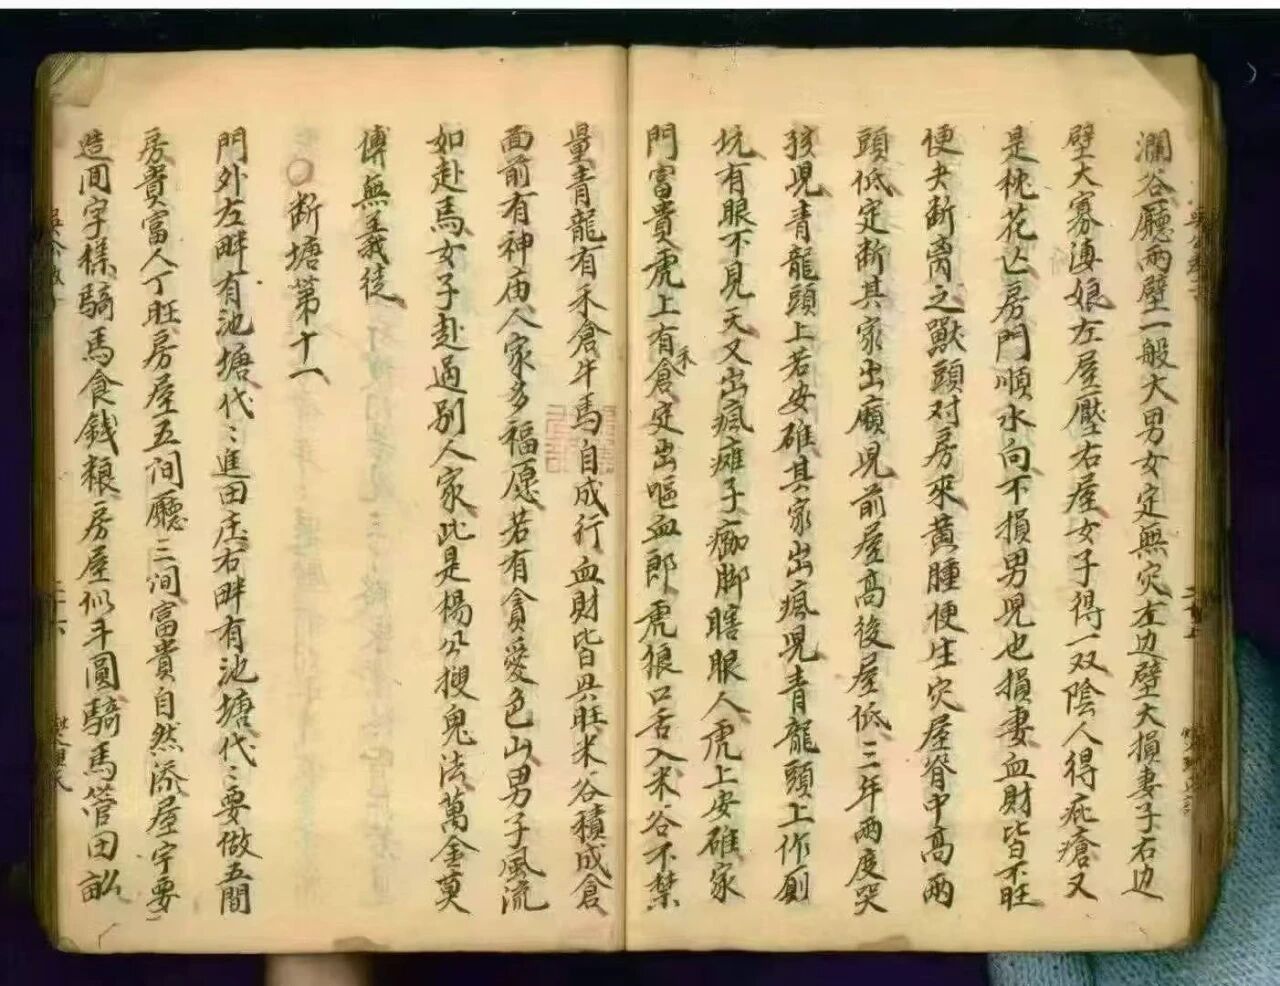 瀾谷廳兩壁一般大男女定無灾左边壁大損妻子右边
壁大寡母娘左屋壓右屋女子得一双陰人得疕瘡又
是枕花亡房門順水向不損男児也損妻血財皆不旺
便夫断离之獸頭对房來黄腫便生灾屋脊中高兩
頭低定断其家出癩児前屋高後屋低三年兩度哭
孩児青龍頭上若安碓其家出瘋児青龍頭上作廁
坑有眼不見天又出瘋癱子痂脚瞎眼人虎上安碓家
門富貴虎上有禾倉定出嘔血郎虎狼口舌入米谷不禁
量青龍有禾倉牛馬自成行血財皆兴旺米谷積成倉
面前有神庙人家多福愿若有貪愛色山男子風流
如赴馬女子赴過别人家此是楊公搜鬼法萬金莫
傅無義徒
〇断塘第十一
門外左畔有池塘代〻進田庄右畔有池塘代〻要做五間
房貴富人丁旺房屋五间廳三间富貴自然添屋宇要
造囬字様騎馬食錢粮房屋似斗圓騎馬管田畝